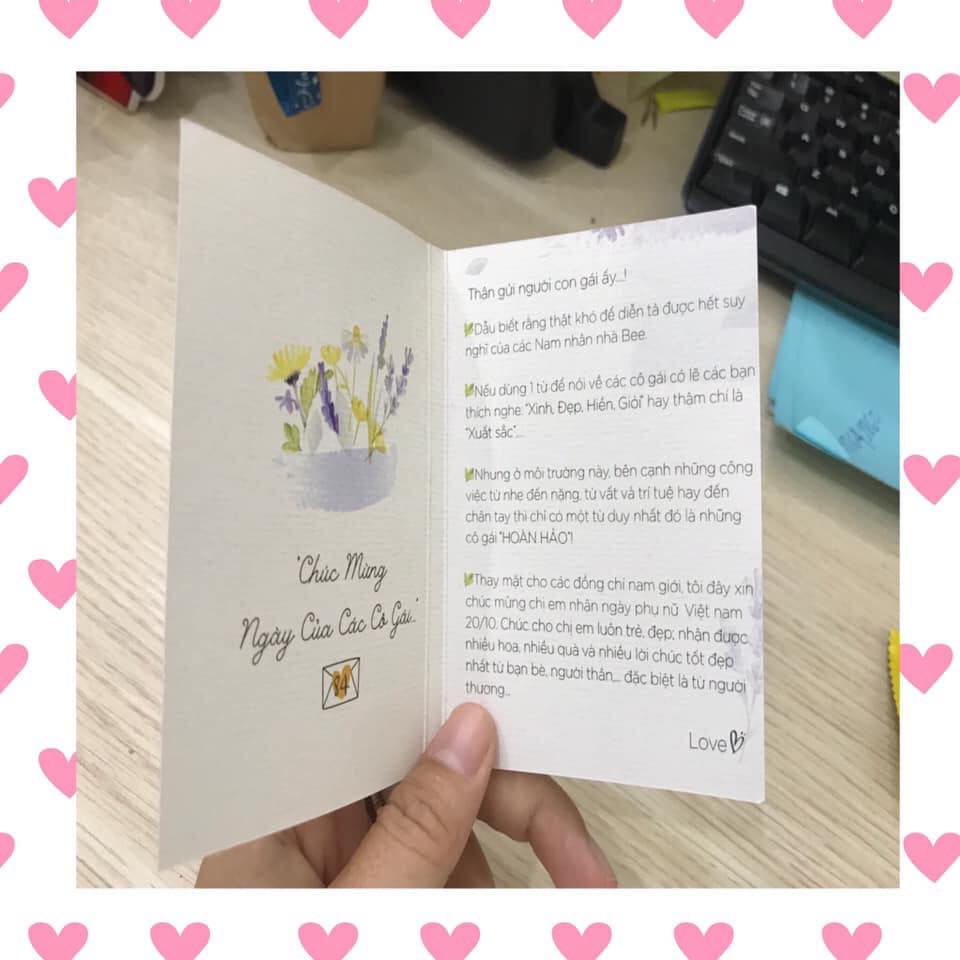 "Chúc Mừng
Ngày Của Các Cô Gái..."
84
Thân gửi người con gái ấy...!
Dẫu biết rằng thật khó để diễn tả được hết suy
nghĩ của các Nam nhân nhà Bee.
Nếu dùng 1 từ để nói về các cô gái có lẽ các bạn
thích nghe: "Xinh, Đẹp, Hiền, Giỏi" hay thậm chí là
"Xuất sắc"...
Nhưng ở môi trường này, bên cạnh những công
việc từ nhẹ đến nặng, từ vất vả trí tuệ hay đến
chân tay thì chỉ có một từ duy nhất đó là những
cô gái "HOÀN HẢO"!
Thay mặt cho các đồng chí nam giới, tôi đây xin
chúc mừng chị em nhân ngày phụ nữ Việt nam
20/10. Chúc cho chị em luôn trẻ, đẹp; nhận được
nhiều hoa, nhiều quà và nhiều lời chúc tốt đẹp
nhất từ bạn bè, người thân,... đặc biệt là từ người
thương...
Love